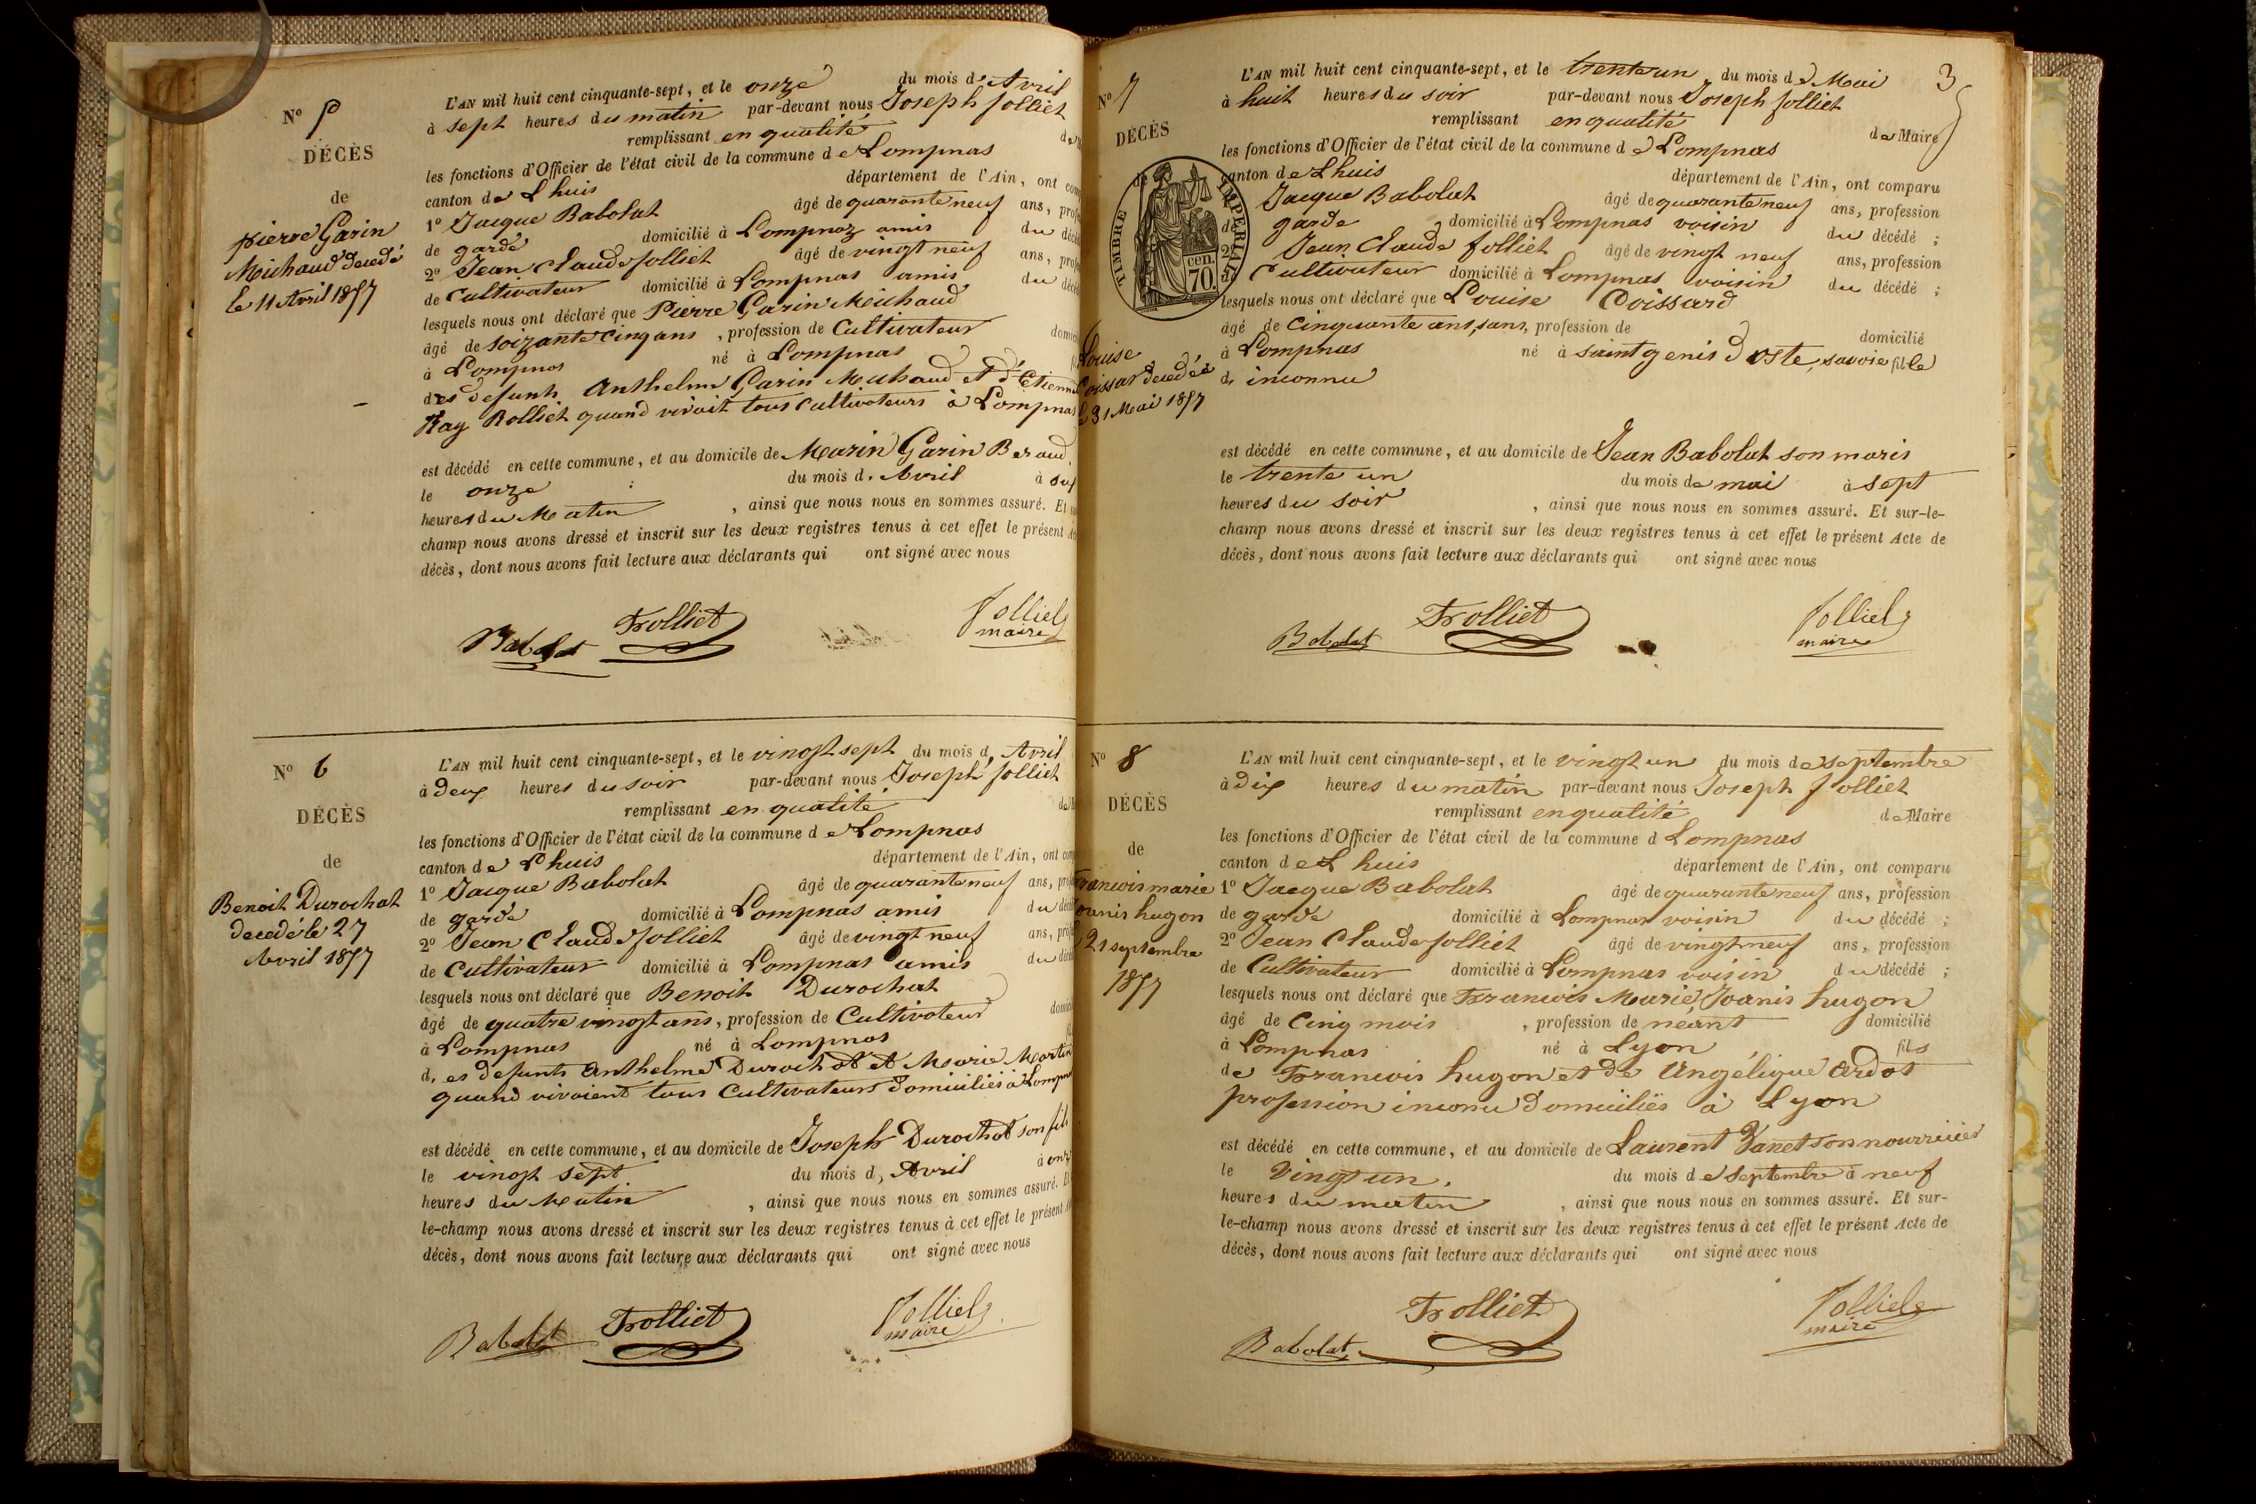 N° 5
DÉCÈS
de
pierre Garin
Michaud decedé
le 11 Avril 1857
L'AN mil huit cent cinquante-sept, et le onze du mois d'Avril
à sept heures du matin par-devant nous Joseph Jolliet
remplissant en qualité de
les fonctions d'Officier de l'état civil de la commune de Lompnas
canton de Lhuis département de l'Ain, ont
1° Jacque Babolat âgé de quarante neuf ans,
de garde domicilié à Lompnaz amis du
2° Jean Claude Jolliet âgé de vingt neuf ans,
de Cultivateur domicilié à Lompnas amis du
lesquels nous ont déclaré que Pierre Garin Michaud
âgé de soizante cinq ans, profession de Cultivateur
à Lompnas né à Lompnas
des defunts Anthelme Garin Michaud et d'Etienne
Ray Rolliet quand vivait tous cultivateurs à Lompnas
est décédé en cette commune, et au domicile de Marin Garin Beraud
le onze du mois d'Avril à
heures du Matin, ainsi que nous nous en sommes assuré. Et
champ nous avons dressé et inscrit sur les deux registres tenus à cet effet le présent
décès, dont nous avons fait lecture aux déclarants qui ont signé avec nous
Babolat Trolliet Jolliet
maire
N° 6
DÉCÈS
de
Benoit Durochat
decedé le 27
Avril 1857
L'AN mil huit cent cinquante-sept, et le vingt sept du mois d'Avril
à deux heures du soir par-devant nous Joseph Jolliet
remplissant en qualité
les fonctions d'Officier de l'état civil de la commune de Lompnas
canton de Lhuis département de l'Ain, ont
1° Jacque Babolat âgé de quarante neuf ans,
de garde domicilié à Lompnas amis du
2° Jean Claude Jolliet âgé de vingt neuf ans,
de Cultivateur domicilié à Lompnas amis du
lesquels nous ont déclaré que Benoit Durochat
âgé de quatre vingt ans, profession de Cultivateur
à Lompnas né à Lompnas
des defunts Anthelme Durochat et Marie Martin
quand vivoient tous Cultivateurs domiciliés à Lompnas
est décédé en cette commune, et au domicile de Joseph Durochat son fils
le vingt sept du mois d'Avril à onze
heures du Matin, ainsi que nous nous en sommes assuré. Et
le-champ nous avons dressé et inscrit sur les deux registres tenus à cet effet le présent
décès, dont nous avons fait lecture aux déclarants qui ont signé avec nous
Babolat Trolliet Jolliet
maire
3
N° 7
DÉCÈS
de
TIMBRE IMPERIAL
70. cen.
Louise
Coissar decedée
le 31 Mai 1857
L'AN mil huit cent cinquante-sept, et le trente un du mois de Mai
à huit heures du soir par-devant nous Joseph Jolliet
remplissant en qualité de Maire
les fonctions d'Officier de l'état civil de la commune de Lompnas
canton de Lhuis département de l'Ain, ont comparu
Jacque Babolat âgé de quarante neuf ans, profession
de garde domicilié à Lompnas voisin du décédé ;
2° Jean Claude Jolliet âgé de vingt neuf ans, profession
de Cultivateur domicilié à Lompnas voisin du décédé ;
lesquels nous ont déclaré que Louise Coissard
âgé de Cinquante ans, sans, profession de domicilié
à Lompnas né à saint genis d'oste, savoie fille
d. inconnu
est décédé en cette commune, et au domicile de Jean Babolat son maris
le trente un du mois de mai à sept
heures du soir, ainsi que nous nous en sommes assuré. Et sur-le-
champ nous avons dressé et inscrit sur les deux registres tenus à cet effet le présent Acte de
décès, dont nous avons fait lecture aux déclarants qui ont signé avec nous
Babolat Trolliet Jolliet
maire
N° 8
DÉCÈS
de
Francois marie
Joanis hugon
21 septembre
1857
L'AN mil huit cent cinquante-sept, et le vingt un du mois de septembre
à dix heures du matin par-devant nous Joseph Jolliet
remplissant en qualité de Maire
les fonctions d'Officier de l'état civil de la commune d Lompnas
canton de Lhuis département de l'Ain, ont comparu
1° Jacque Babolat âgé de quarante neuf ans, profession
de garde domicilié à Lompnas voisin du décédé ;
2° Jean Claude Jolliet âgé de vingt neuf ans, profession
de Cultivateur domicilié à Lompnas voisin du décédé ;
lesquels nous ont déclaré que Francois Marie Joanis hugon
âgé de Cinq mois, profession de néant domicilié
à Lompnas né à Lyon fils
de Francois hugon et de Angélique Ardot
profession inconnu domiciliés à Lyon
est décédé en cette commune, et au domicile de Laurent Vanet son nourricier
le Vingt un. du mois de septembre à neuf
heures du matin, ainsi que nous nous en sommes assuré. Et sur-
le-champ nous avons dressé et inscrit sur les deux registres tenus à cet effet le présent Acte de
décès, dont nous avons fait lecture aux déclarants qui ont signé avec nous
Babolat Trolliet Jolliet
maire